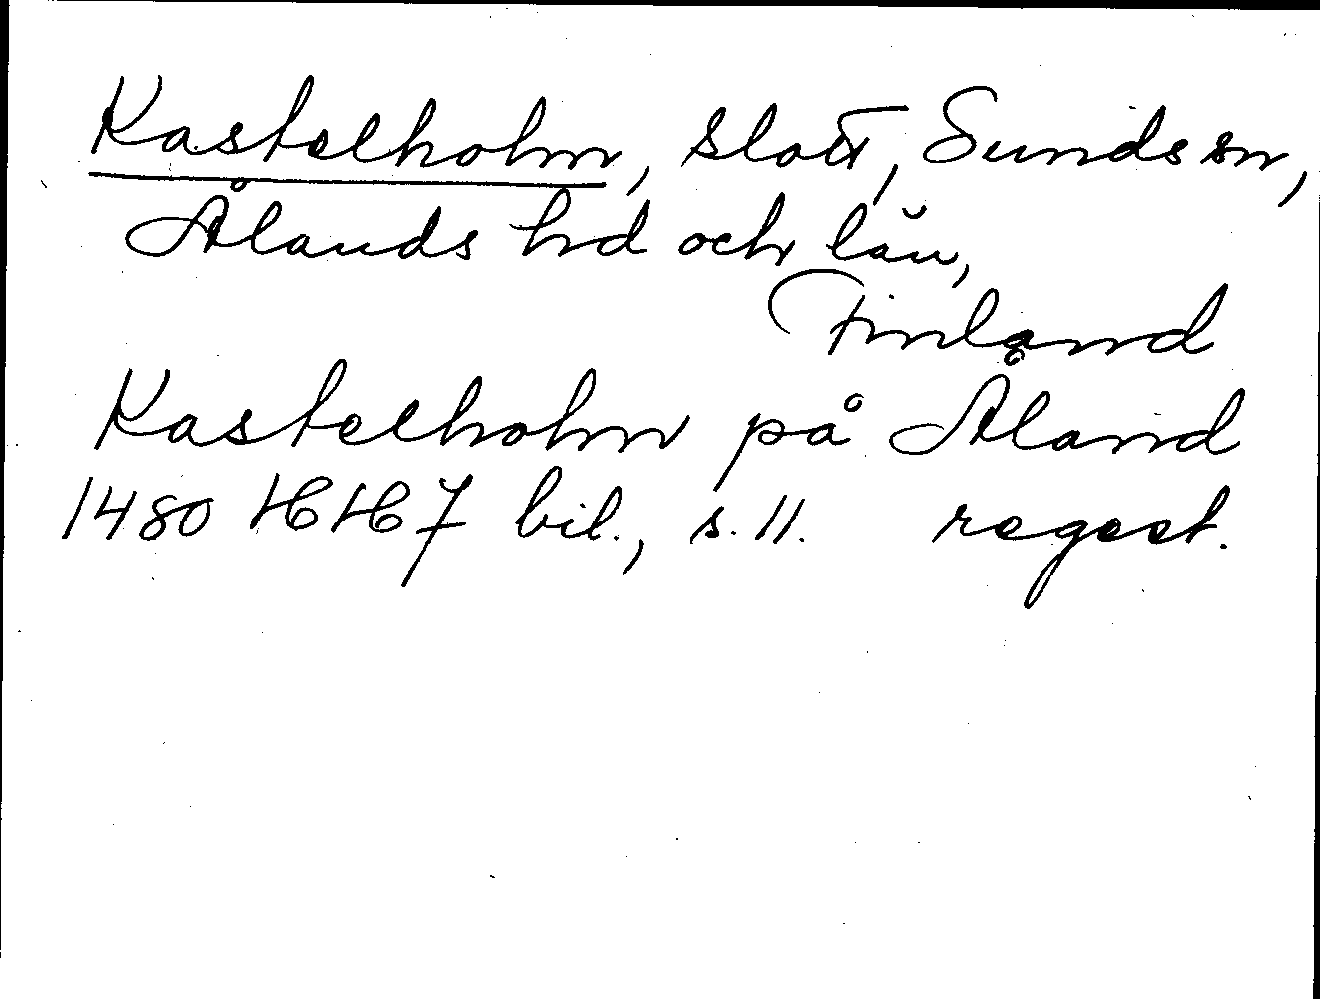 Kastelholm, slott, Sunds sn,
Ålands hd och län,
Finland
Kastelholm på Åland
1480 HH 7 bil., s. 11. regest.